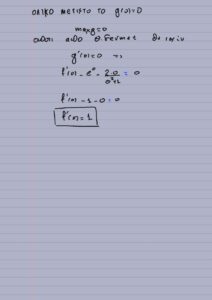 ολικο μεγιστο το g(0)=0
max g=0
οποτε απο Θ. Fermat θα ισχυει
g'(0)=0 →
f'(0) - e⁰ - 2·0/(0²+1) = 0
f'(0) - 1 - 0 = 0
f'(0) = 1